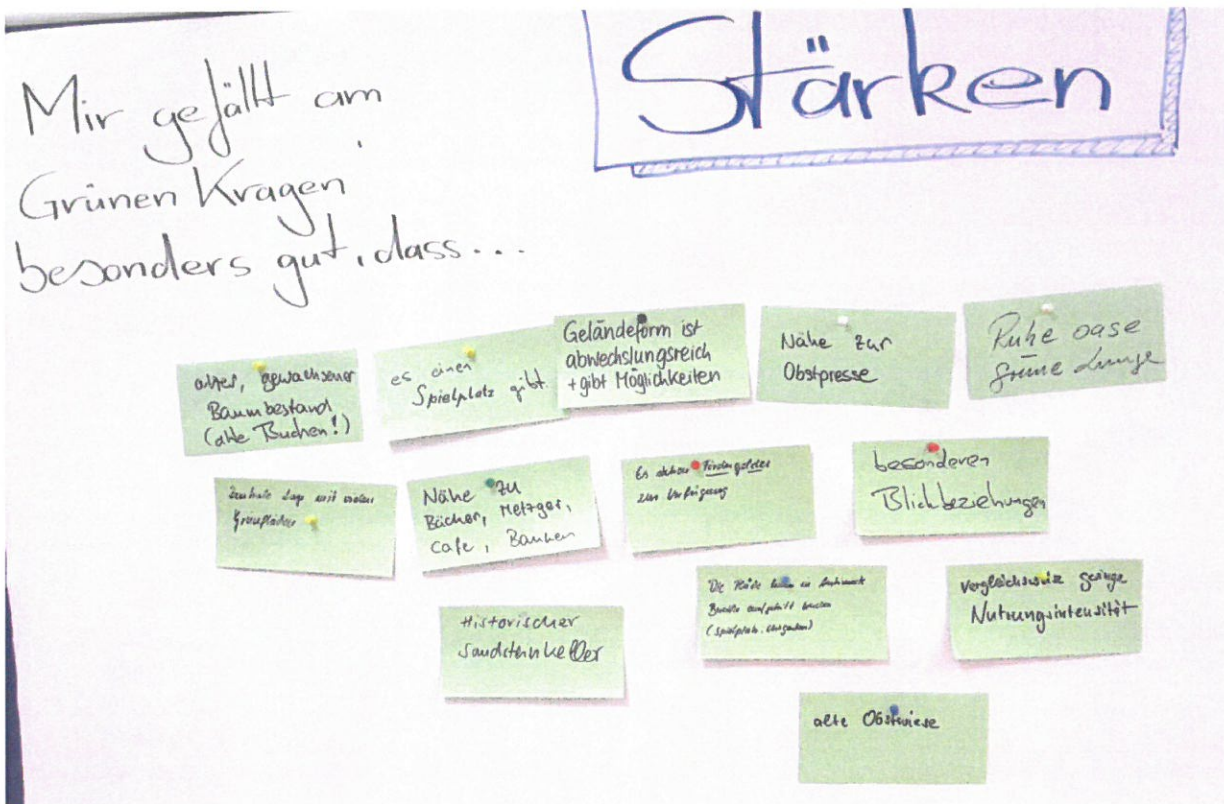 Stärken
Mir gefällt am
Grünen Kragen
besonders gut, dass...
alter, gewachsener
Baumbestand
(alte Buchen!)
es einen
Spielplatz gibt
Geländeform ist
abwechslungsreich
+ gibt Möglichkeiten
Nähe zur
Obstpresse
Ruhe oase
grüne Lunge
zentrale Lage mit vielen
Grünflächen
Nähe zu
Bäcker, Metzger,
Cafe, Banken
Es stehen Fördergelder
zur Verfügung
besonderen
Blickbeziehungen
Historischer
Sandsteinkeller
Die
Bereiche aufgeteilt werden
(Spielplatz,
vergleichsweise geringe
Nutzungsintensität
alte Obstwiese